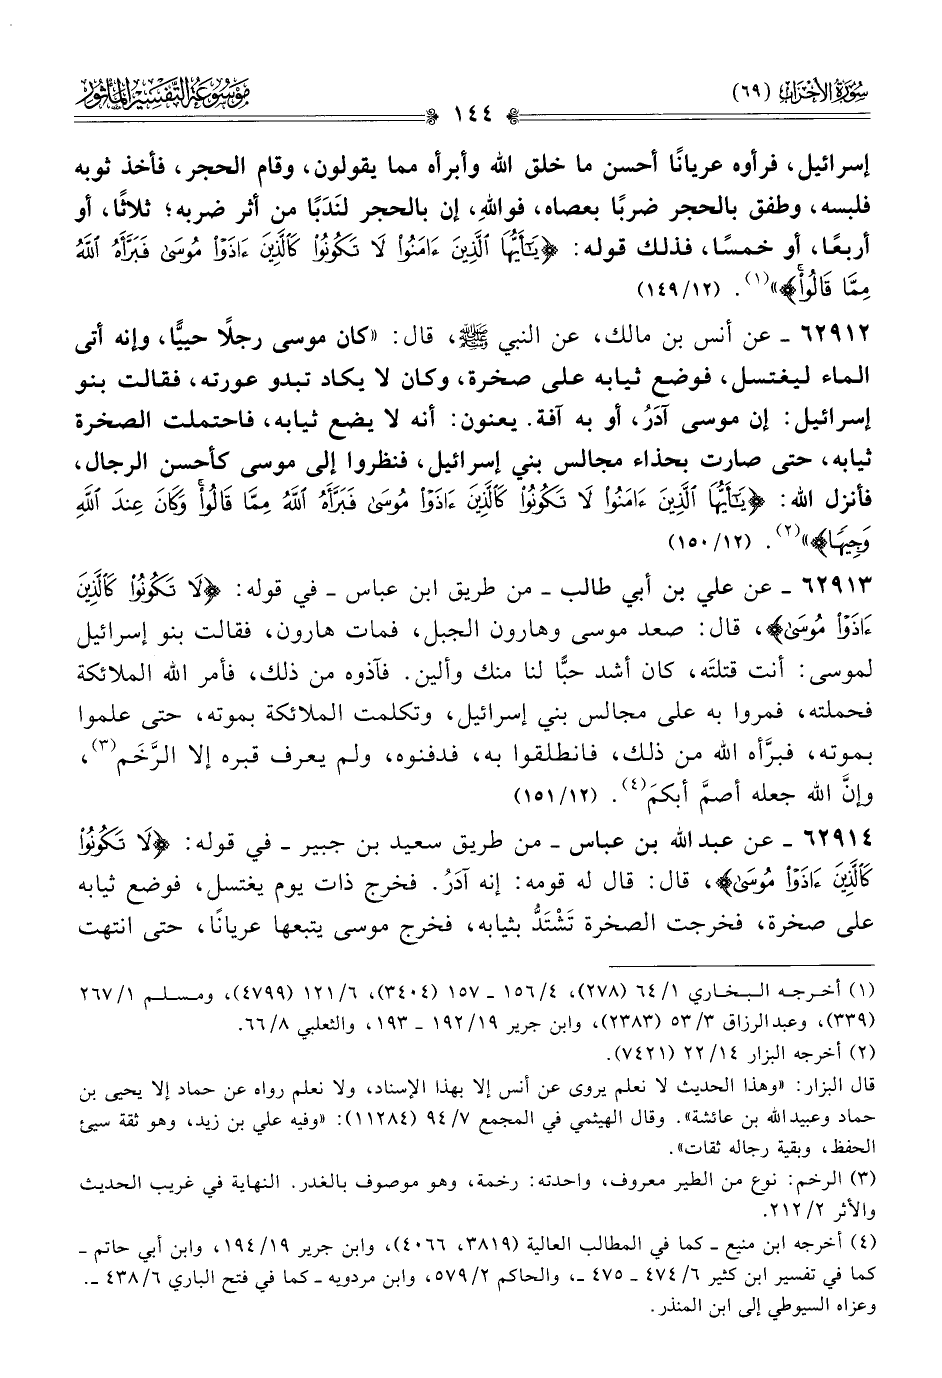 سُورَةُ الأَحْزَابِ (٦٩)
مَوْسُوعَةُ التَّفْسِيرِ المَأْثُورِ
١٤٤
إسرائيل، فرأوه عريانًا أحسن ما خلق الله وأبرأه مما يقولون، وقام الحجر، فأخذ ثوبه
فلبسه، وطفق بالحجر ضربًا بعصاه، فواللهِ، إن بالحجر لنَدَبًا من أثر ضربه؛ ثلاثًا، أو
أربعًا، أو خمسًا، فذلك قوله: ﴿يَٰٓأَيُّهَا ٱلَّذِينَ ءَامَنُواْ لَا تَكُونُواْ كَٱلَّذِينَ ءَاذَوۡاْ مُوسَىٰ فَبَرَّأَهُ ٱللَّهُ
مِمَّا قَالُواْۚ﴾»(١). (١٤٩/١٢)
٦٢٩١٢ ـ عن أنس بن مالك، عن النبي ﷺ، قال: «كان موسى رجلًا حييًّا، وإنه أتى
الماء ليغتسل، فوضع ثيابه على صخرة، وكان لا يكاد تبدو عورته، فقالت بنو
إسرائيل: إن موسى آدَرُ، أو به آفة. يعنون: أنه لا يضع ثيابه، فاحتملت الصخرة
ثيابه، حتى صارت بحذاء مجالس بني إسرائيل، فنظروا إلى موسى كأحسن الرجال،
فأنزل الله: ﴿يَٰٓأَيُّهَا ٱلَّذِينَ ءَامَنُواْ لَا تَكُونُواْ كَٱلَّذِينَ ءَاذَوۡاْ مُوسَىٰ فَبَرَّأَهُ ٱللَّهُ مِمَّا قَالُواْۚ وَكَانَ عِندَ ٱللَّهِ
وَجِيهًا﴾»(٢). (١٥٠/١٢)
٦٢٩١٣ ـ عن علي بن أبي طالب ـ من طريق ابن عباس ـ في قوله: ﴿لَا تَكُونُواْ كَٱلَّذِينَ
ءَاذَوۡاْ مُوسَىٰ﴾، قال: صعد موسى وهارون الجبل، فمات هارون، فقالت بنو إسرائيل
لموسى: أنت قتلتَه، كان أشد حبًّا لنا منك وألين. فآذوه من ذلك، فأمر الله الملائكة
فحملته، فمروا به على مجالس بني إسرائيل، وتكلمت الملائكة بموته، حتى علموا
بموته، فبرَّأه الله من ذلك، فانطلقوا به، فدفنوه، ولم يعرف قبره إلا الرَّخَم(٣)،
وإنَّ الله جعله أصمَّ أبكمَ(٤). (١٥١/١٢)
٦٢٩١٤ ـ عن عبد الله بن عباس ـ من طريق سعيد بن جبير ـ في قوله: ﴿لَا تَكُونُواْ
كَٱلَّذِينَ ءَاذَوۡاْ مُوسَىٰ﴾، قال: قال له قومه: إنه آدَرُ. فخرج ذات يوم يغتسل، فوضع ثيابه
على صخرة، فخرجت الصخرة تَشْتَدُّ بثيابه، فخرج موسى يتبعها عريانًا، حتى انتهت
(١) أخرجه البخاري ١/ ٦٤ (٢٧٨)، ٤/ ١٥٦ ـ ١٥٧ (٣٤٠٤)، ٦/ ١٢١ (٤٧٩٩)، ومسلم ١/ ٢٦٧
(٣٣٩)، وعبد الرزاق ٣/ ٥٣ (٢٣٨٣)، وابن جرير ١٩/ ١٩٢ ـ ١٩٣، والثعلبي ٨/ ٦٦.
(٢) أخرجه البزار ١٤/ ٢٢ (٧٤٢١).
قال البزار: «وهذا الحديث لا نعلم يروى عن أنس إلا بهذا الإسناد، ولا نعلم رواه عن حماد إلا يحيى بن
حماد وعبيد الله بن عائشة». وقال الهيثمي في المجمع ٧/ ٩٤ (١١٢٨٤): «وفيه علي بن زيد، وهو ثقة سيئ
الحفظ، وبقية رجاله ثقات».
(٣) الرخم: نوع من الطير معروف، واحدته: رخمة، وهو موصوف بالغدر. النهاية في غريب الحديث
والأثر ٢/ ٢١٢.
(٤) أخرجه ابن منيع ـ كما في المطالب العالية (٣٨١٩، ٤٠٦٦)، وابن جرير ١٩/ ١٩٤، وابن أبي حاتم ـ
كما في تفسير ابن كثير ٦/ ٤٧٤ ـ ٤٧٥ ـ، والحاكم ٢/ ٥٧٩، وابن مردويه ـ كما في فتح الباري ٦/ ٤٣٨ ـ.
وعزاه السيوطي إلى ابن المنذر.